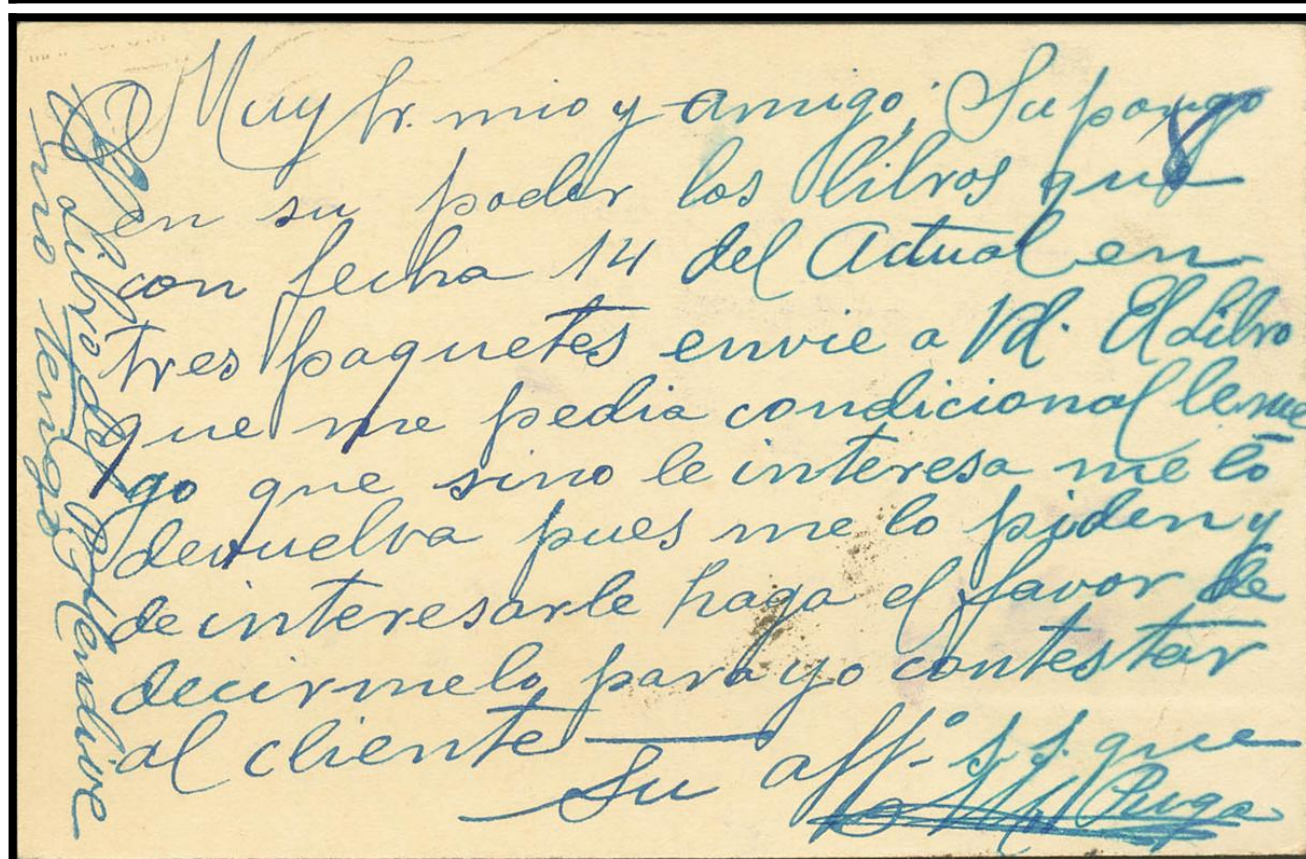 Muy Sr. mio y amigo; Supongo
en su poder los libros que
con fecha 14 del Actual en
tres paquetes envie a Vd. El Libro
que me pedia condicional le rue
go que sino le interesa me lo
devuelva pues me lo piden y
de interesarle haga el favor de
decirmelo para yo contestar
al cliente
Su aff.º s.s. que
Puga
El libro del P. Mendive
no tengo